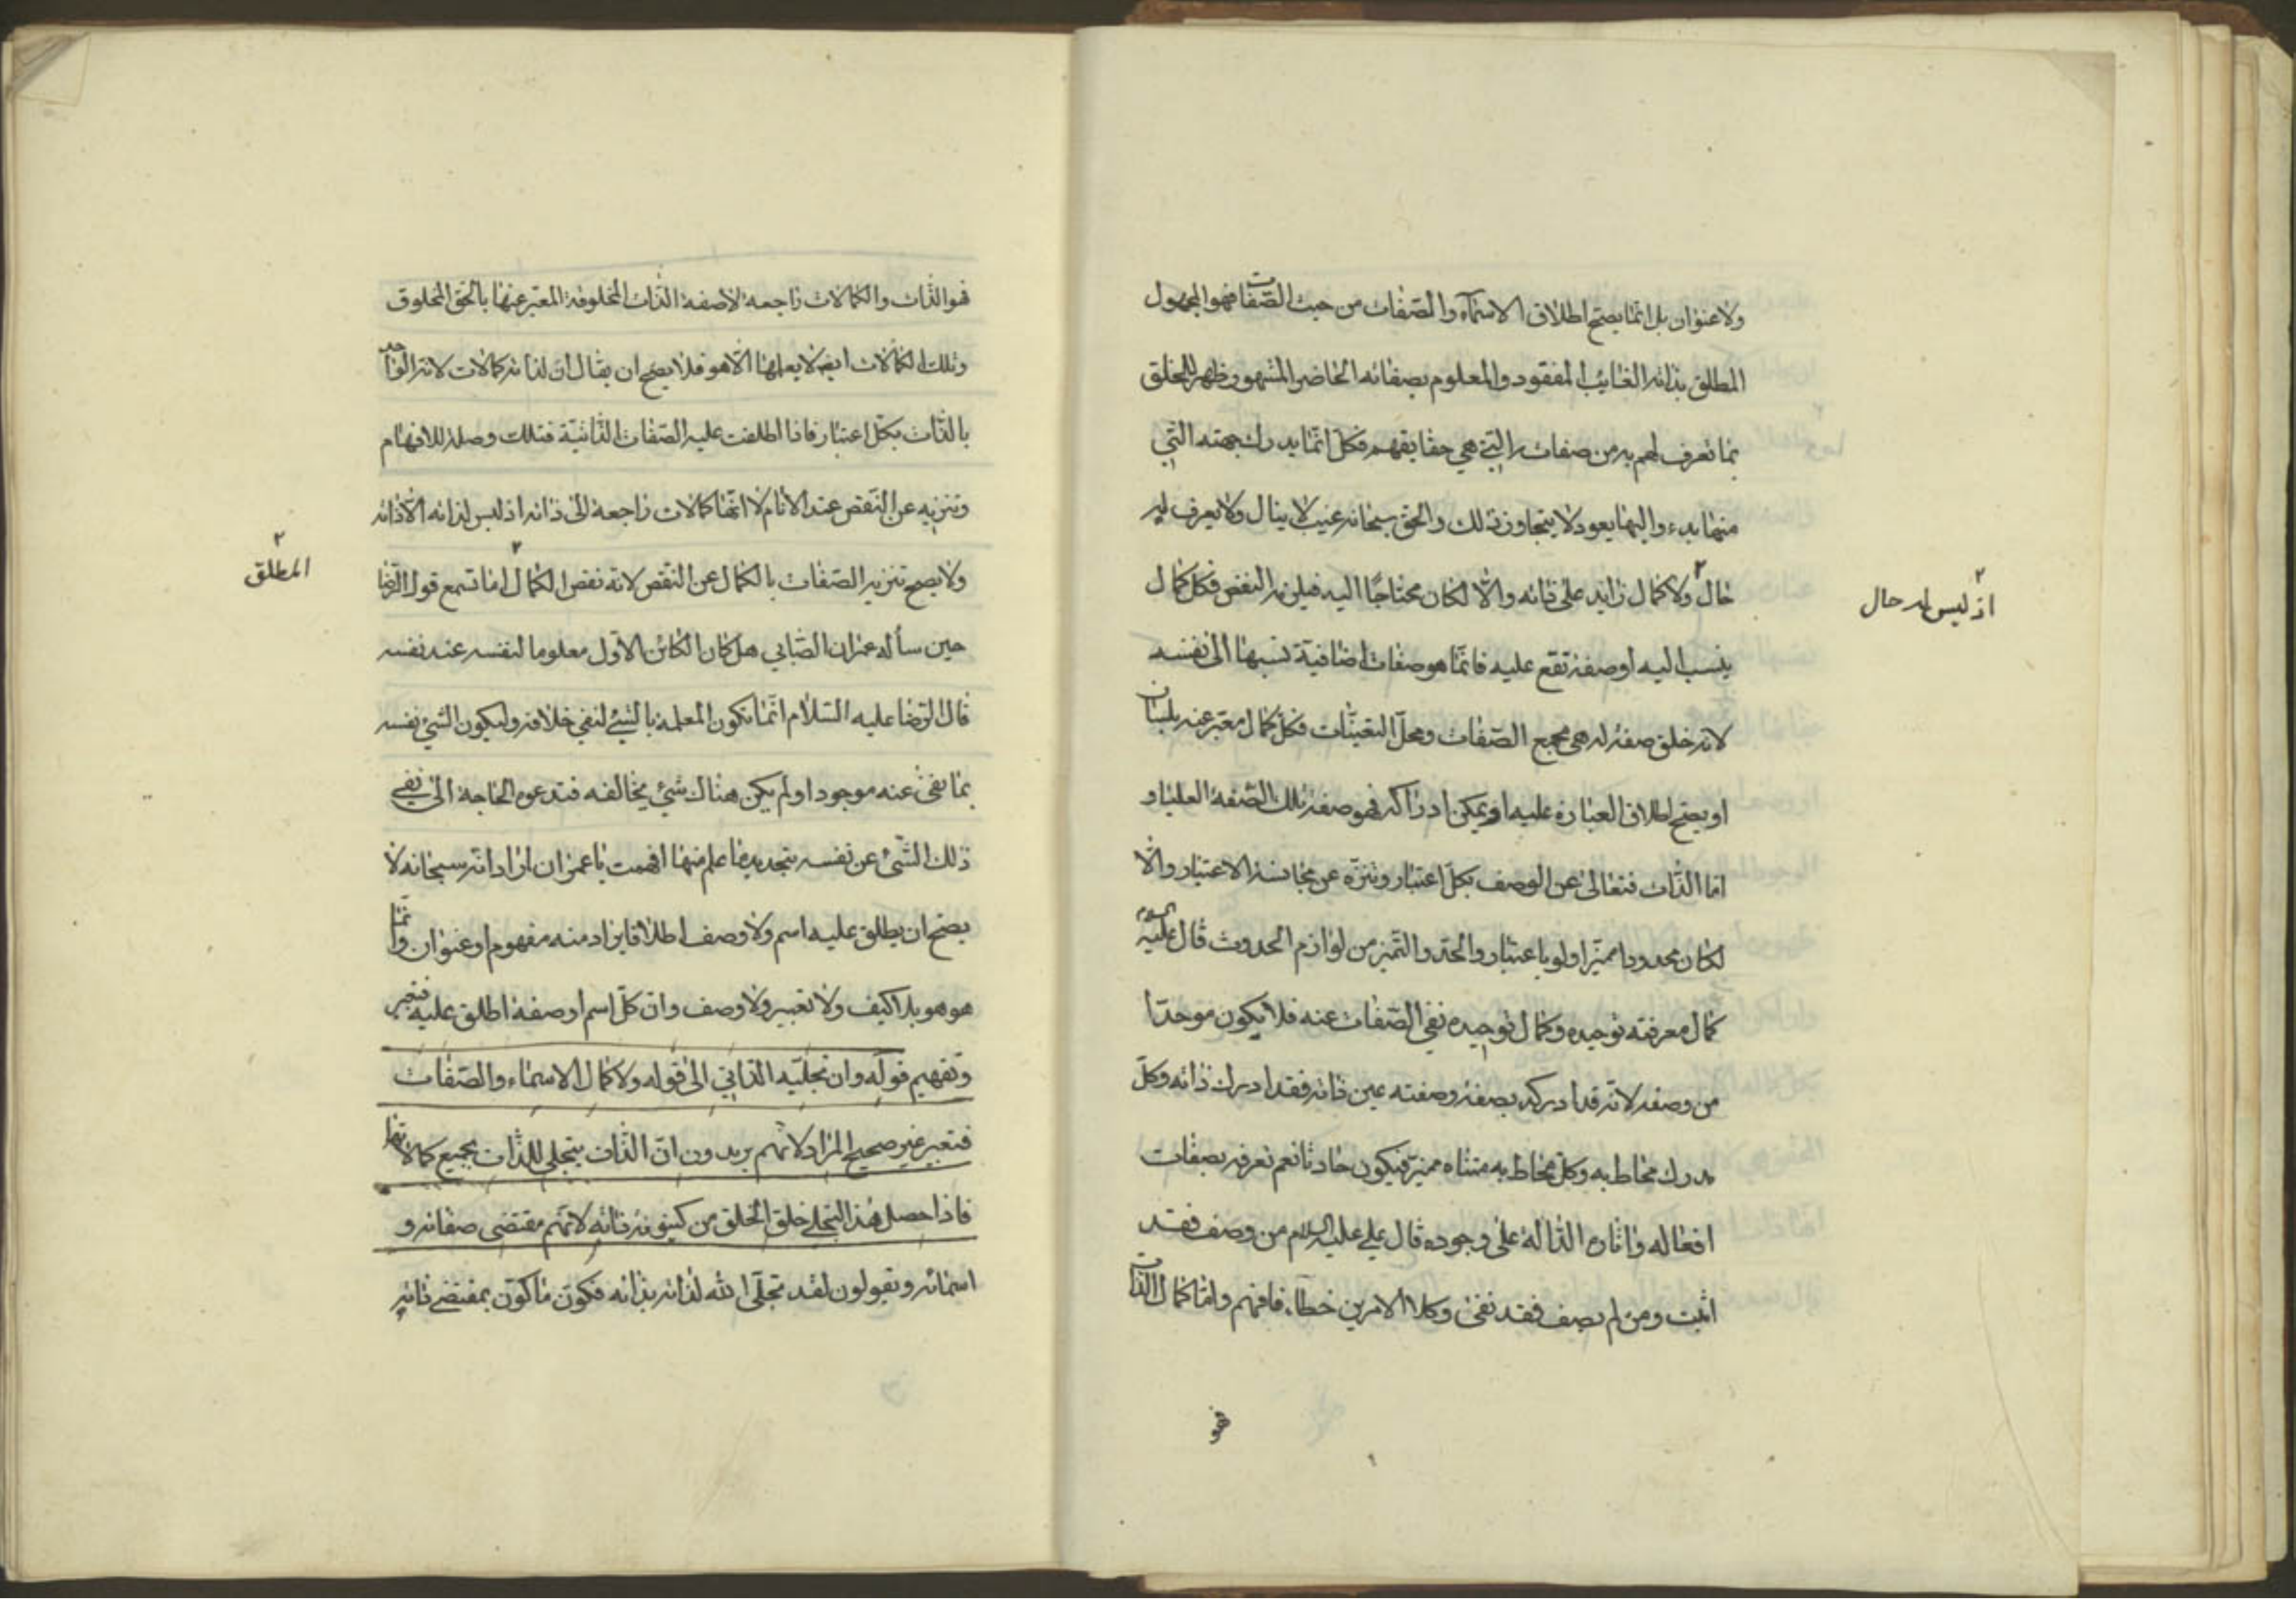 ولا عنوان بل انما يصح اطلاق الاسمآء والصفات من حيث الصفات فهو المجهول
المطلق بذاته الغايب المفقود والمعلوم بصفاته الحاضر المشهود ظهر للخلق
بما تعرف لهم به من صفاته التي هي حقايقهم فكل انما يدرك جهته التي
منها بدء واليها يعود لا يتجاوز ذلك والحق سبحانه غيب لا ينال ولا يعرف ليه
حال ٢ ولا كمال زايد على ذاته والا لكان محتاجا اليه فيلزمه النقص فكل كمال
٢
اذ ليس له حال
ينسب اليه او صفة تقع عليه فانما هو صفات اضافية نسبها الى نفسه
لانه خلق صفة له هى مجمع الصفات ومحل التعينات فكل كمال معبر عنه بلسان
او يصح اطلاق العبارة عليه او يمكن ادراكه فهو صفة تلك الصفة العليا و
اما الذات فتعالى عن الوصف بكل اعتبار وتنزه عن مجانسة الاعتبار والا
لكان محدودا مميزا ولو باعتبار والحد والتميز من لوازم الحدوث قال عليه السلام
كمال معرفته توحيده وكمال توحيده نفي الصفات عنه فلا يكون موحدا
من وصفه لانه قد ادركه بصفة وصفته عين ذاته فقد ادرك ذاته وكل
مدرك محاط به وكل محاط به متناه مميز فيكون حادثا نعم نعرفه بصفات
افعاله واثاره الدالة على وجوده قال علي عليه السلام من وصف فقد
اثبت ومن لم يصف فقد نفى وكلا الامرين خطاء فافهم واما كمال الذات
فهو
فهو الذات والكمالات راجعة لاصفة الذات المخلوقة المعبر عنها بالحق المخلوق
وتلك الكمالات ايضا لا يعلمها الا هو فلا يصح ان يقال ان لذاته كمالات لانه الواحد
بالذات بكل اعتبار فاذا اطلقت عليه الصفات الذاتية فتلك وصلة للافهام
وتنزيه عن النقص عند الانام لا انها كمالات راجعة الى ذاته اذ ليس لذاته الا ذاته
ولا يصح تنزيه الصفات بالكمال عن النقص لانه نقص الكمال ٢ اما تسمع قول الرضا
٢
المطلق
حين سأله عمران الصابي هل كان الكائن الاول معلوما لنفسه عند نفسه
قال الرضا عليه السلام انما تكون المعلمة بالشيء لنفي خلافه وليكون الشيء نفسه
بما نفى عنه موجودا ولم يكن هناك شيء يخالفه فتدعوه الحاجة الى نفي
ذلك الشيء عن نفسه بتحديد ما علم منها افهمت يا عمران اراد انه سبحانه لا
يصح ان يطلق عليه اسم ولا وصف اطلاقا يراد منه مفهوم او عنوان وانما
هو هو بلا كيف ولا تعبير ولا وصف وان كل اسم او صفة اطلق عليه فتعبير
وتفهيم قوله وان تجليه الذاتي الى قوله ولا كمال الاسماء والصفات
فتعبير غير صحيح المراد لانهم يريدون ان الذات يتجلى للذات بجميع كمالاتها
فاذا حصل هذا التجلي خلق الخلق من كينونة ذاته لانهم مقتضى صفاته و
اسمائه ويقولون لقد تجلى الله لذاته بذاته فكون ما كون بمقتضى ذاته